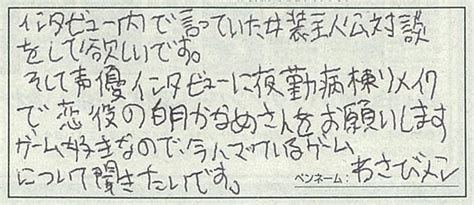 インタビュー内で言っていた女装主人公対談
をして欲しいです。
そして声優インタビューに夜勤病棟リメイク
で恋役の白月かなめさんをお願いします
ゲーム好きなので、今ハマっているゲーム
について聞きたいです。
ペンネーム:わさびメン